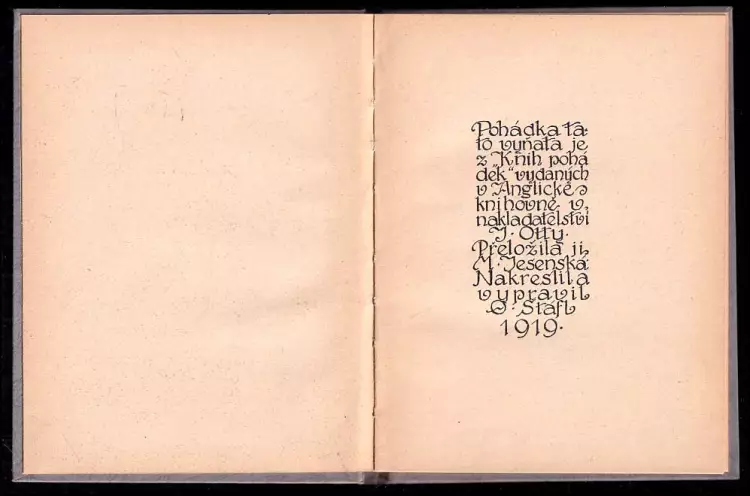 Pohádka ta-
to vyňata je
z „Knih pohá
dek“ vydaných
v Anglické
knihovně v
nakladatelství
J. Otty.
Přeložila ji
M. Jesenská
Nakreslil a
vypravil
O. Štáfl
1919.